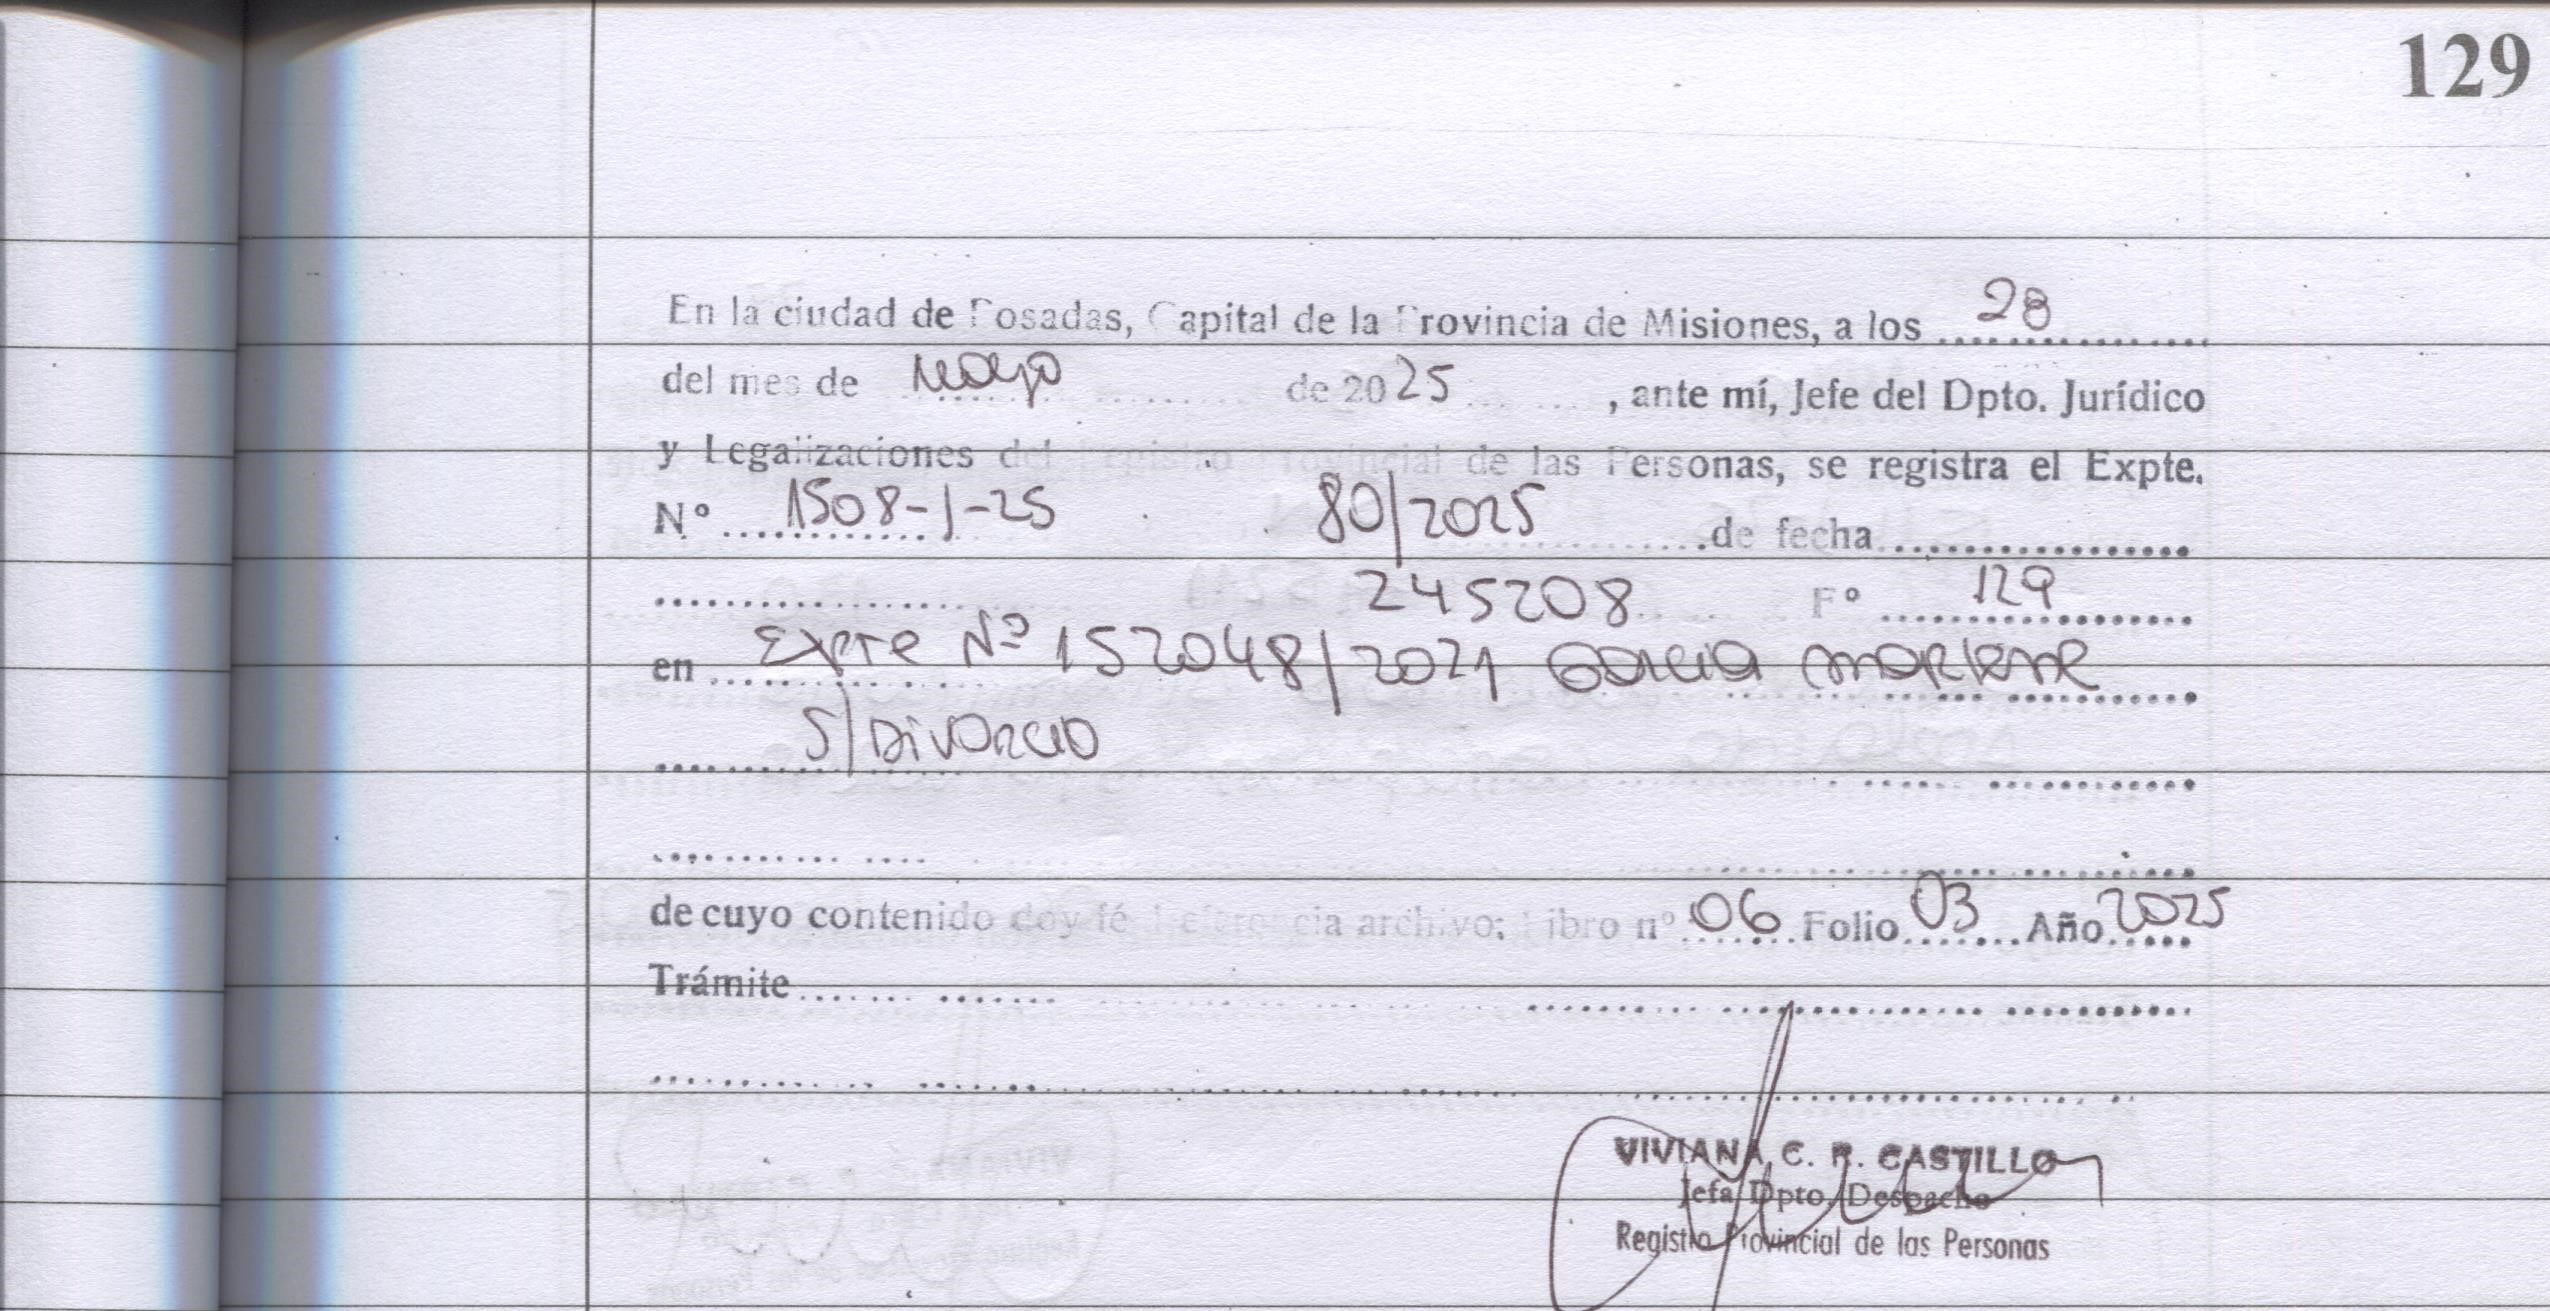 129
En la ciudad de Posadas, Capital de la Provincia de Misiones, a los 28
del mes de mayo de 2025, ante mí, Jefe del Dpto. Jurídico
y Legalizaciones del Registro Provincial de las Personas, se registra el Expte.
Nº 1508-J-25 80/2025 de fecha
245208 Fº 129
en Expte Nº 152048/2021 Garcia Marlene
S/Divorcio
de cuyo contenido doy fé Referencia archivo: Libro nº 06 Folio 03 Año 2025
Trámite
VIVIANA C. R. CASTILLO
Jefa Dpto. Despacho
Registro Provincial de las Personas